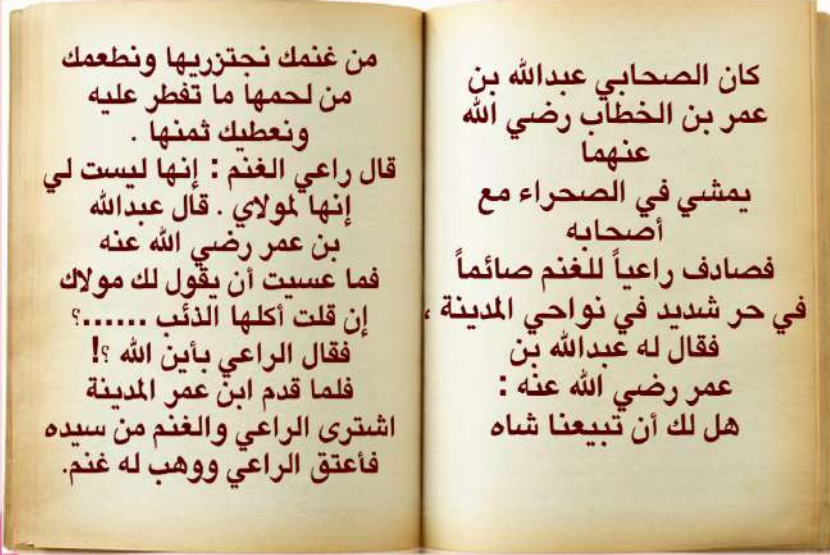 كان الصحابي عبدالله بن
عمر بن الخطاب رضي الله
عنهما
يمشي في الصحراء مع
أصحابه
فصادف راعياً للغنم صائماً
في حر شديد في نواحي المدينة ،
فقال له عبدالله بن
عمر رضي الله عنه :
هل لك أن تبيعنا شاه
من غنمك نجتزريها ونطعمك
من لحمها ما تفطر عليه
ونعطيك ثمنها .
قال راعي الغنم : إنها ليست لي
إنها لمولاي . قال عبدالله
بن عمر رضي الله عنه
فما عسيت أن يقول لك مولاك
إن قلت أكلها الذئب ......؟
فقال الراعي بأين الله ؟!
فلما قدم ابن عمر المدينة
اشترى الراعي والغنم من سيده
فأعتق الراعي ووهب له غنم.